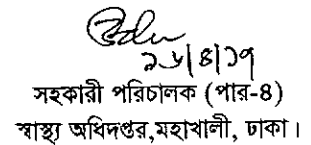 ২৬|৪|১৭
সহকারী পরিচালক (পার-৪)
স্বাস্থ্য অধিদপ্তর,মহাখালী, ঢাকা।